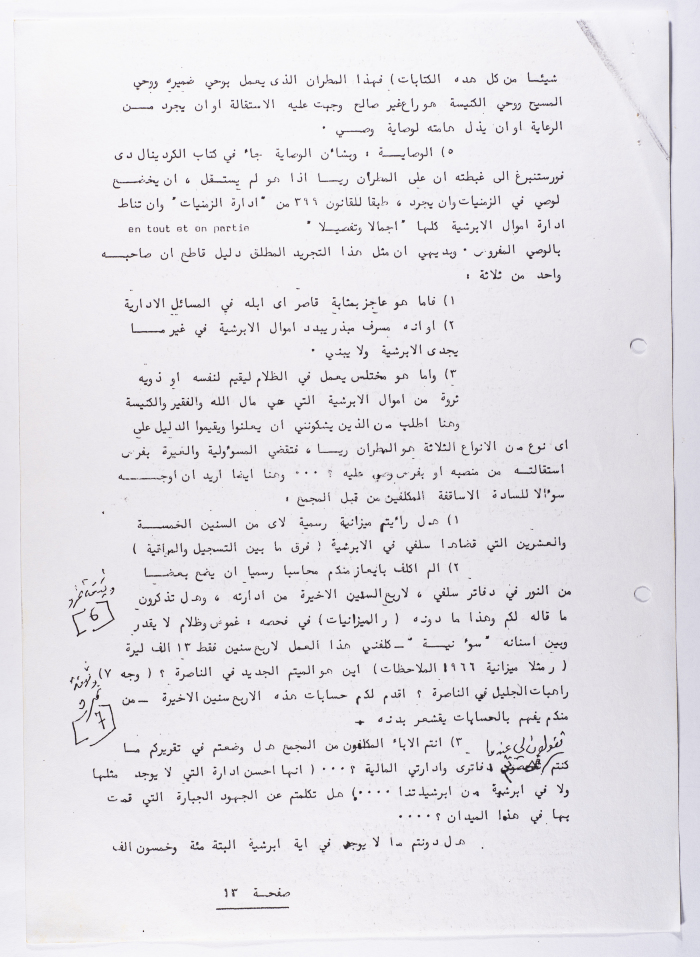 شيئا من كل هده الكتابات) فهذا المطران الذى يعمل بوحي ضميره ووحي
المسيح ووحي الكنيسة هو راع غير صالح وجبت عليه الاستقالة او ان يجرد مـــن
الرعاية او ان يذل هامته لوصاية وصـــي ٠
٥) الوصايـــة : وبشأن الوصاية جاء في كتاب الكردينال دى
فورستنبرغ الى غبطته ان على المطران ريـا اذا هو لم يستقل ، ان يخضـــع
لوصي في الزمنيات وان يجرد ، طبقا للقانون ٣٩٩ من "ادارة الزمنيات" وان تناط
ادارة اموال الابرشية كلها "اجمالا وتفصيلا " en tout et en partie
بالوصي المفروض ٠ وبديهي ان مثل هذا التجريد المطلق دليل قاطع ان صاحبـــه
واحد من ثلاثة :
١) فاما هو عاجز بمثابة قاصر اى ابله في المسائل الادارية
٢) او انه مسرف مبذر يبدد اموال الابرشية في غير مـــا
يجدى الابرشية ولا يبني ٠
٣) واما هو مختلس يعمل في الظلام ليقيم لنفسه او ذويه
ثروة من اموال الابرشية التي هي مال الله والفقير والكنيسة
وهنا اطلب من الذين يشكونني ان يعلنوا ويقيموا الدليل على
اى نوع من الانواع الثلاثة هو المطران ريـا ، فتقضي المسؤولية والغيرة بفرض
استقالتـــه من منصبه او بفرض وصي عليه ؟ ٠٠٠ وهنا ايضا اريد ان اوجـــه
سؤالا للسادة الاساقفة المكلفين من قبل المجمع :
١) هل رأيتم ميزانية رسمية لاى من السنين الخمســـة
والعشرين التي قضاها سلفي في الابرشية ( فرق ما بين التسجيل والمراقبة )
٢) الم اكلف بايعاز منكم محاسبا رسميا ان يضع بعضـــا
من النور في دفاتر سلفي ، لاربع السنين الاخيرة من ادارته ، وهل تذكرون
ما قاله لكم وهذا ما دونه ( ر الميزانيات) في فحصه : غموض وظلام لا يقدر
وبين اسنانه "سوء نيـــة" – كلفني هذا العمل لاربع سنين فقط ١٣ الف ليرة
( ر مثلا ميزانية ١٩٦٦ الملاحظات) اين هو الميتم الجديد في الناصرة ؟ ( وجه ٧)
راهبات الجليل في الناصرة ؟ اقدم لكم حسابات هذه الاربع سنين الاخيرة – من
منكم يفهم بالحسابات يقشعر بدنه ٠
٣) انتم الاباء المكلفون من المجمع هل وضعتم في تقريركم مـــا
كنتم تقولون لي عندما دفاترى وادارتي المالية ؟ ٠٠٠ ( انها احسن ادارة التي لا يوجد مثلها
ولا في ابرشية من ابرشيتنا ٠٠٠٠) هل تكلمتم عن الجهود الجبارة التي قمت
بها في هذا الميدان ؟ ٠٠٠٠
هل دونتم ما لا يوجد في اية ابرشية البتة مئة وخمسون الف
6
7
صفحة ١٣